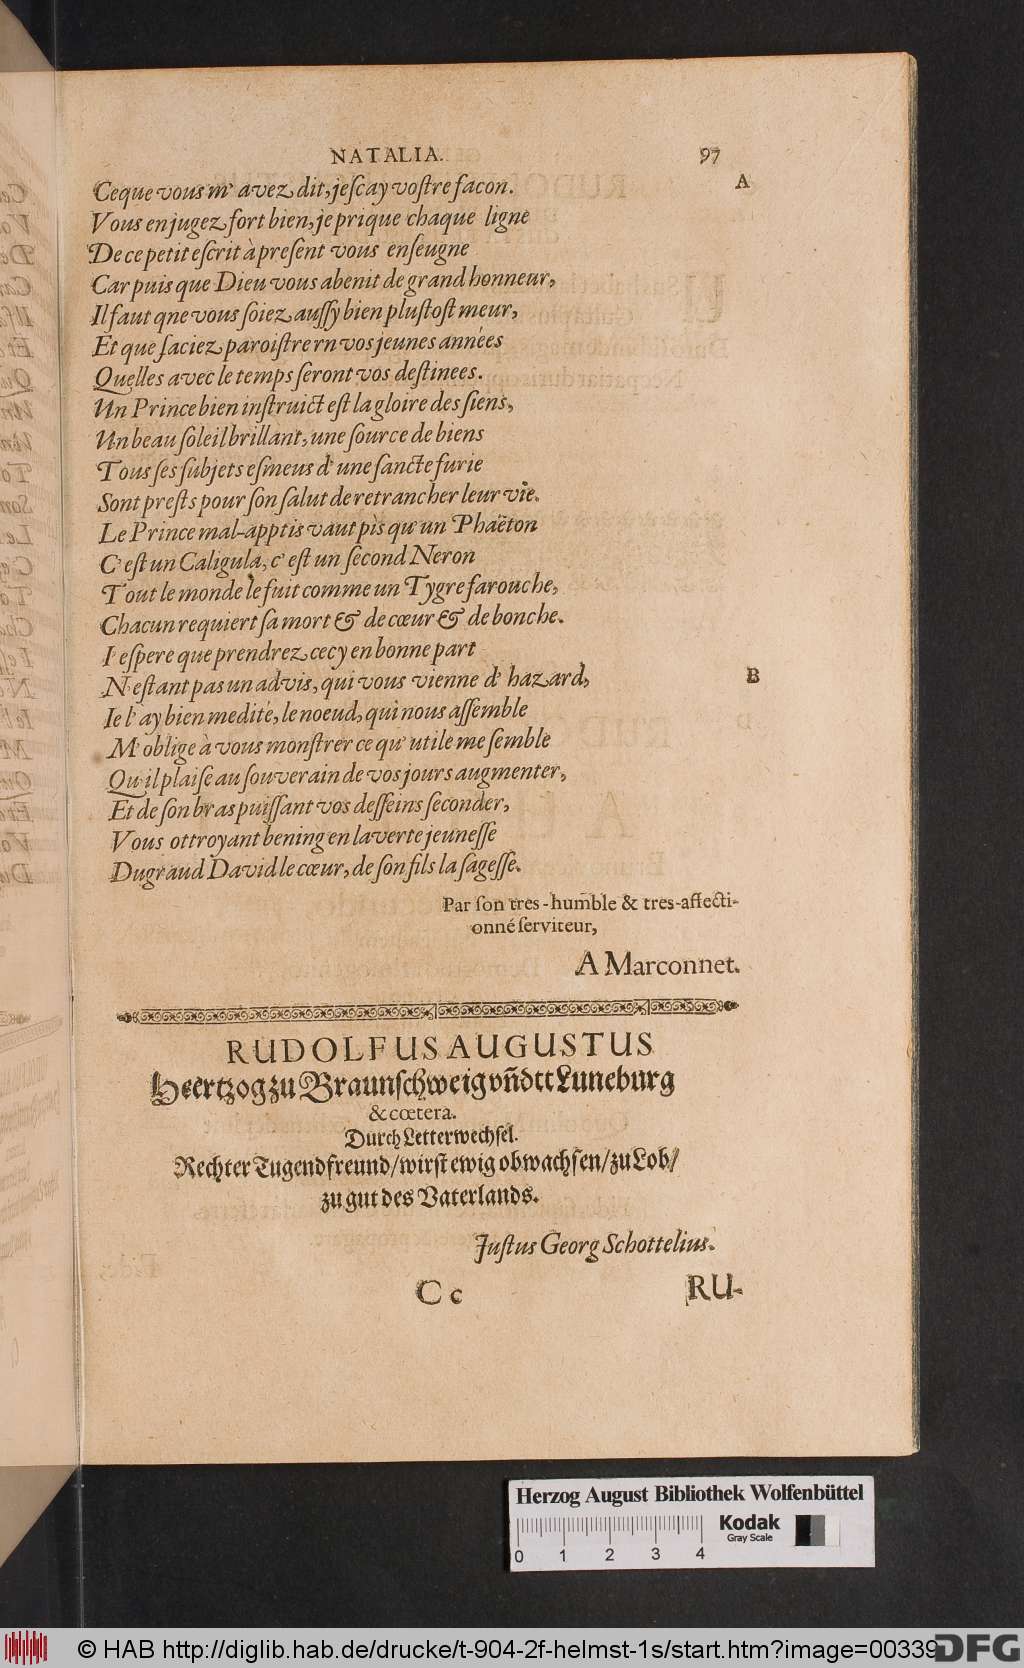 NATALIA. 97
A
Ceque vous m' avez dit, je sçay vostre facon.
Vous en jugez fort bien, je prique chaque ligne
De ce petit escrit à present vous enseugne
Car puis que Dieu vous abenit de grand honneur,
Il faut qne vous soiez aussy bien plustost meur,
Et que faciez paroistre rn vos jeunes années
Quelles avec le temps seront vos destinees.
Un Prince bien instruict est la gloire des siens,
Un beau soleil brillant, une source de biens
Tous ses subjets esmeus d' une sancte furie
Sont prests pour son salut de retrancher leur vie.
Le Prince mal-apptis vaut pis qu' un Phaëton
C' est un Caligula, c' est un second Neron
Tout le monde le fuit comme un Tygre farouche,
Chacun requiert sa mort & de cœur & de bonche.
I' espere que prendrez cecy en bonne part
N' estant pas un advis, qui vous vienne d' hazard,
B
Ie l' ay bien medité, le noeud, qui nous assemble
M' oblige à vous monstrer ce qu' utile me semble
Qu' il plaise au souverain de vos jours augmenter,
Et de son bras puissant vos desseins seconder,
Vous ottroyant bening en la verte jeunesse
Du graud David le cœur, de son fils la sagesse.
Par son tres-humble & tres-affecti-
onné serviteur,
A Marconnet.
RUDOLFUS AUGUSTUS
Heertzog zu Braunschweig vñdtt Luneburg
& cœtera.
Durch Letterwechsel.
Rechter Tugendfreund/ wirst ewig obwachsen/ zu Lob/
zu gut des Vaterlands.
Justus Georg Schottelius.
C c RU-
Herzog August Bibliothek Wolfenbüttel
Kodak
Gray Scale
0 1 2 3 4
© HAB http://diglib.hab.de/drucke/t-904-2f-helmst-1s/start.htm?image=00339
DFG